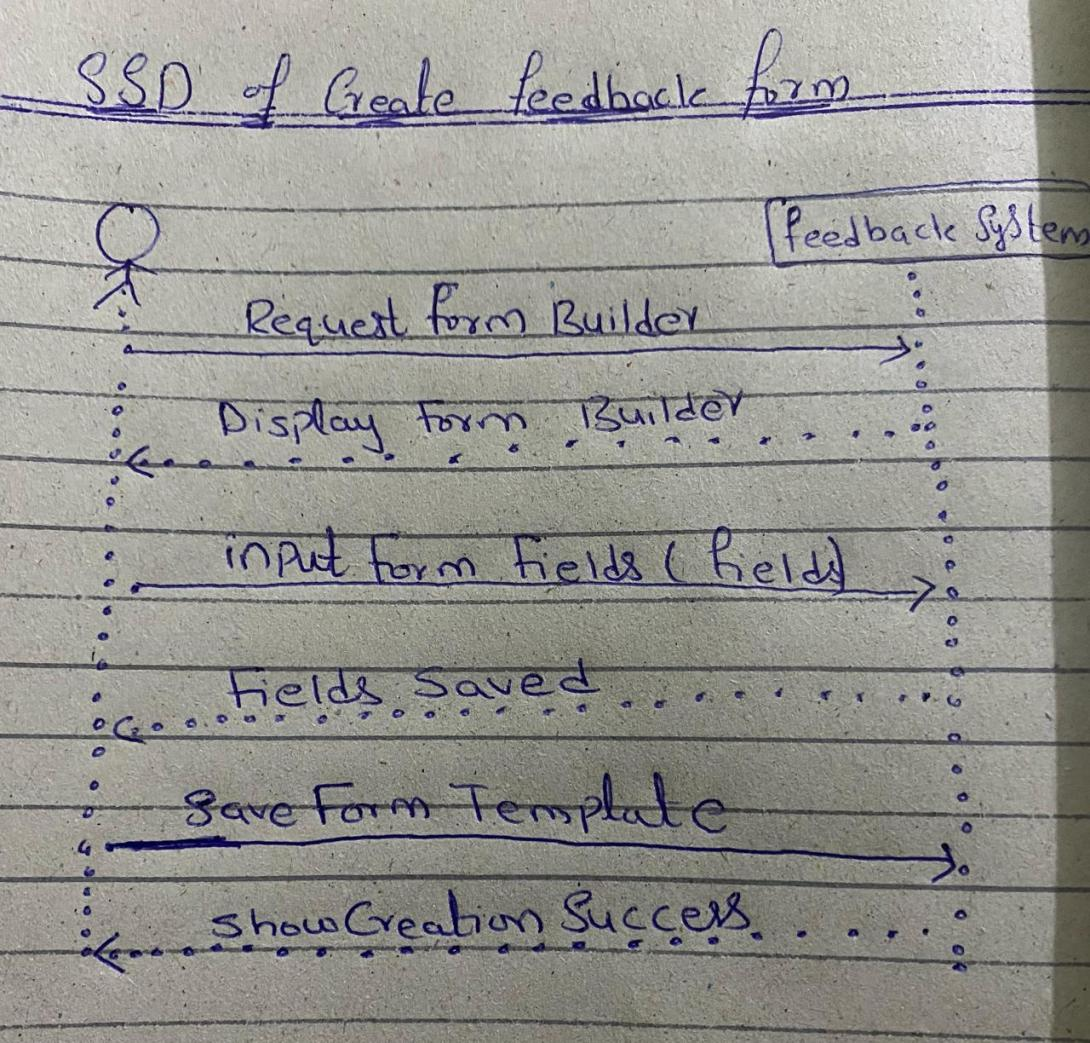 SSD of Create feedback form
feedback System
Request form Builder
Display Form Builder
input form Fields ( fields)
Fields Saved
Save Form Template
Show Creation Success